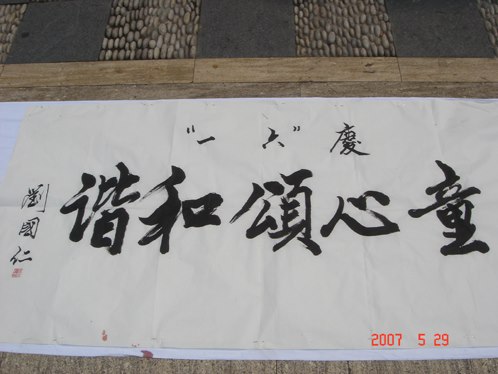 慶“六一”
童心頌和谐
劉國仁
2007 5 29